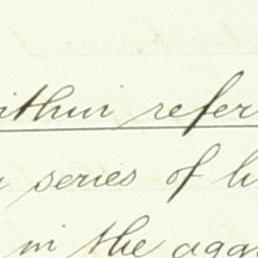 ithin refer
series of h
in the agg